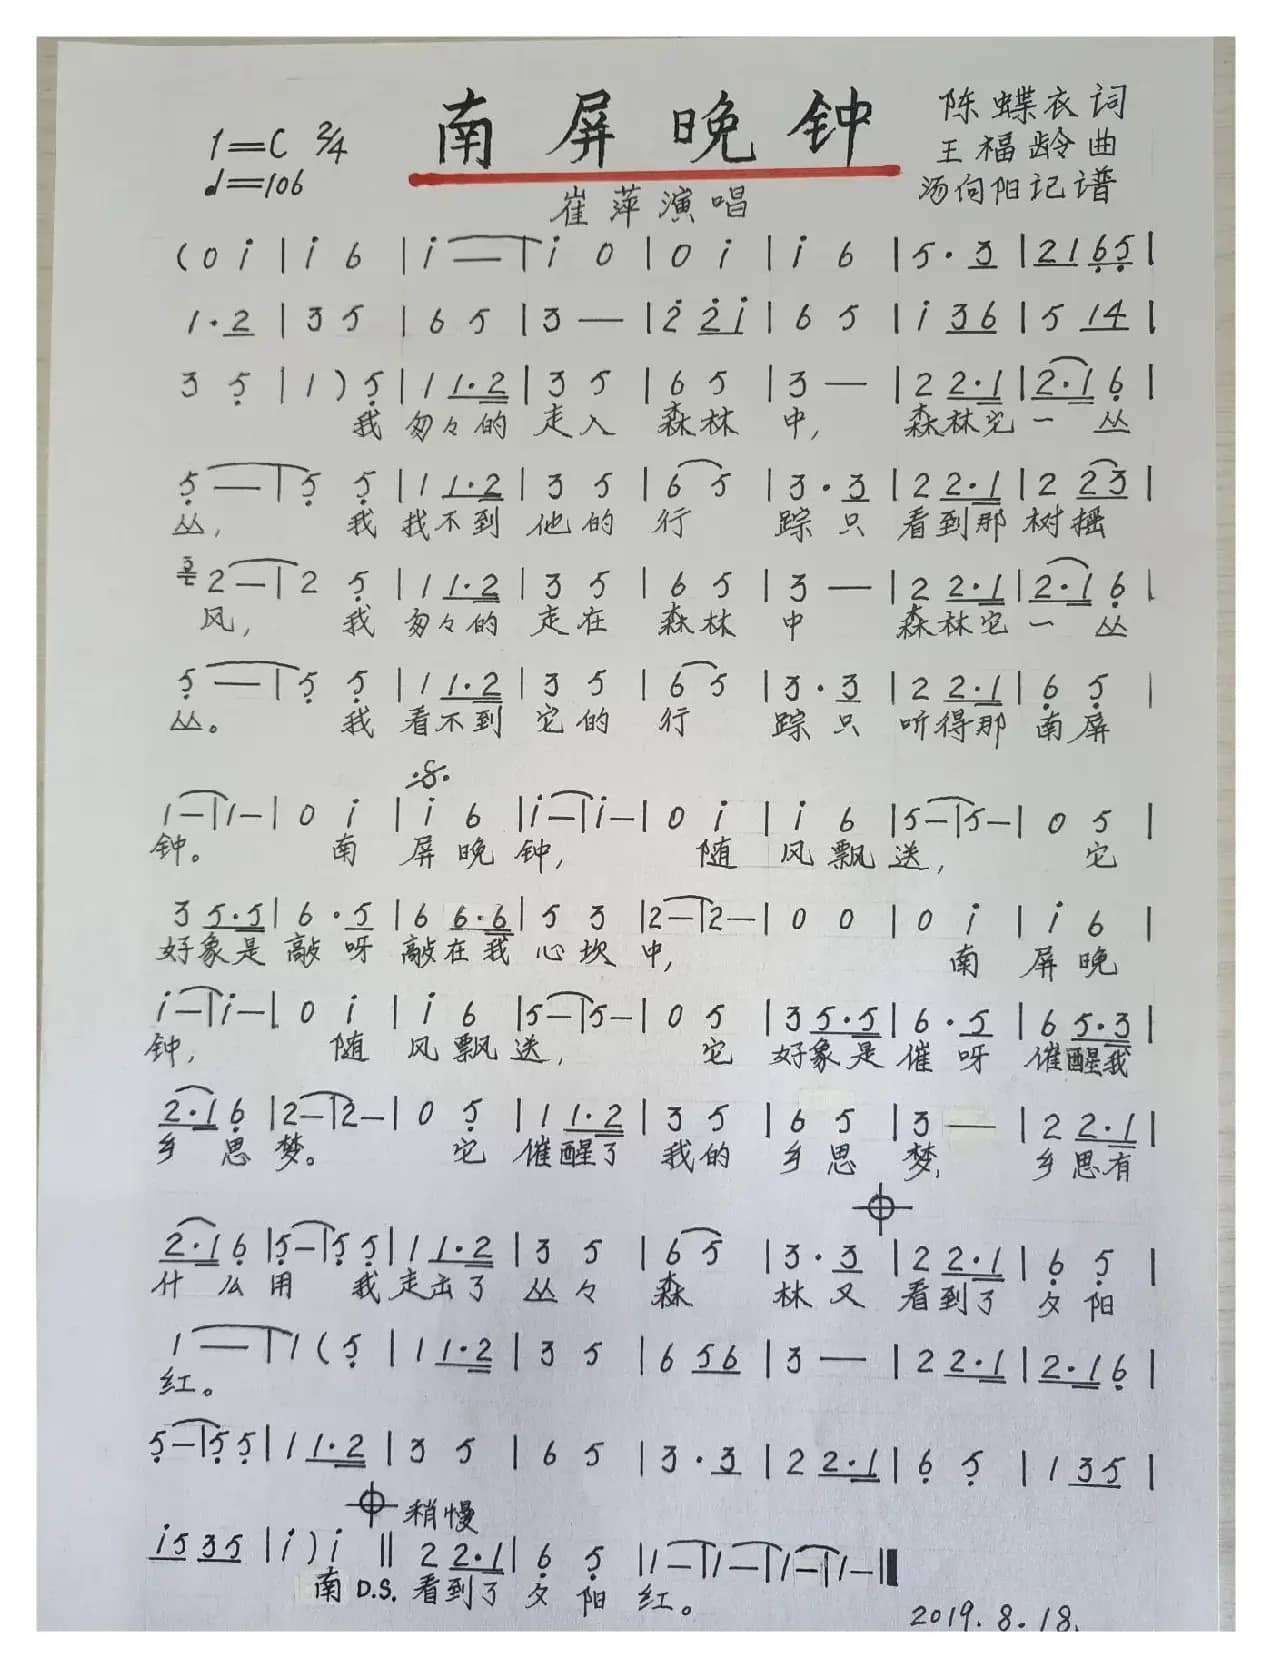 南屏晚钟
1=C 2/4
♩=106
陈蝶衣词
王福龄曲
汤向阳记谱
崔萍演唱
(0 i̇ | i̇ 6 | i̇ — | i̇ 0 | 0 i̇ | i̇ 6 | 5·3 | 21 6̣5̣ |
1·2 | 3 5 | 6 5 | 3 — | 2̇ 2̇i̇ | 6 5 | i̇ 36 | 5 14 |
3 5̣ | 1 ) 5̣ | 1 1·2 | 3 5 | 6 5 | 3 — | 2 2·1 | 2·1 6̣ |
我 匆々的 走入 森林 中, 森林它一 丛
5̣ — | 5̣ 5̣ | 1 1·2 | 3 5 | 6 5 | 3·3 | 2 2·1 | 2 23 |
丛, 我 找不到 他的 行 踪只 看到那 树摇
3 2 — | 2 5̣ | 1 1·2 | 3 5 | 6 5 | 3 — | 2 2·1 | 2·1 6̣ |
风, 我 匆々的 走在 森林 中 森林它一 丛
5̣ — | 5̣ 5̣ | 1 1·2 | 3 5 | 6 5 | 3·3 | 2 2·1 | 6̣ 5̣ |
丛。 我 看不到 它的 行 踪只 听得那 南屏
1 — | 1 — | 0 i̇ | i̇ 6 | i̇ — | i̇ — | 0 i̇ | i̇ 6 | 5 — | 5 — | 0 5 |
钟。 南 屏晚 钟, 随 风飘 送, 它
3 5·5 | 6·5 | 6 6·6 | 5 3 | 2 — | 2 — | 0 0 | 0 i̇ | i̇ 6 |
好象是 敲呀 敲在我 心坎 中, 南 屏晚
i̇ — | i̇ — | 0 i̇ | i̇ 6 | 5 — | 5 — | 0 5 | 3 5·5 | 6·5 | 6 5·3 |
钟, 随 风飘 送, 它 好象是 催呀 催醒我
2·1 6̣ | 2 — | 2 — | 0 5̣ | 1 1·2 | 3 5 | 6 5 | 3 — | 2 2·1 |
乡 思 梦。 它 催醒了 我的 乡思 梦, 乡思有
2·1 6̣ | 5̣ — | 5̣ 5̣ | 1 1·2 | 3 5 | 6 5 | 3·3 | 2 2·1 | 6̣ 5̣ |
什么用 我走出了 丛々 森 林又 看到了 夕阳
1 — | 1 (5̣ | 1 1·2 | 3 5 | 6 56 | 3 — | 2 2·1 | 2·1 6̣ |
红。
5̣ — | 5̣ 5̣ | 1 1·2 | 3 5 | 6 5 | 3·3 | 2 2·1 | 6̣ 5̣ | 1 35 |
稍慢
i̇5 35 | i̇ ) i̇ || 2 2·1 | 6̣ 5̣ | 1 — | 1 — | 1 — | 1 — ||
南 D.S. 看到了 夕阳 红。
2019.8.18.